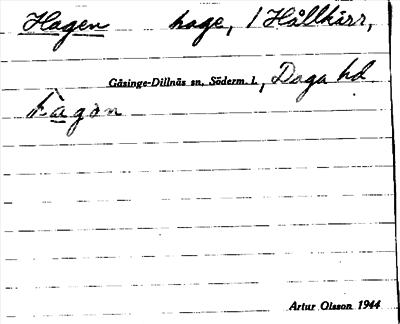 Hagen hage, 1 Hållkärr,
Gåsinge-Dillnäs sn, Söderm. l., Daga hd
hàgɑn
Artur Olsson 1944